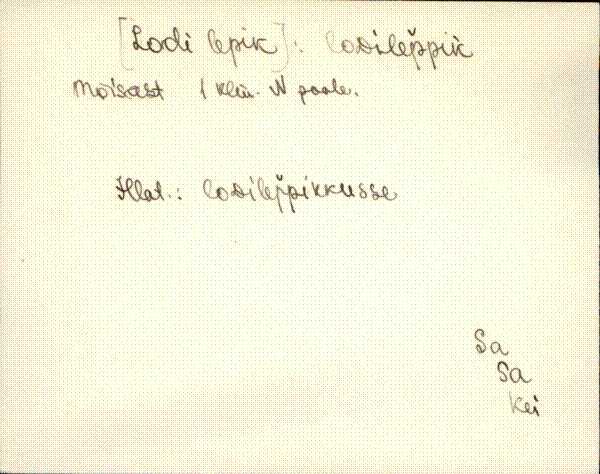 [Lodi lepik]: loᴅilep̆pik
mõisast 1 klm. N poole.
Illat.: loᴅilep̆pikkusse
Sa
Sa
Kei